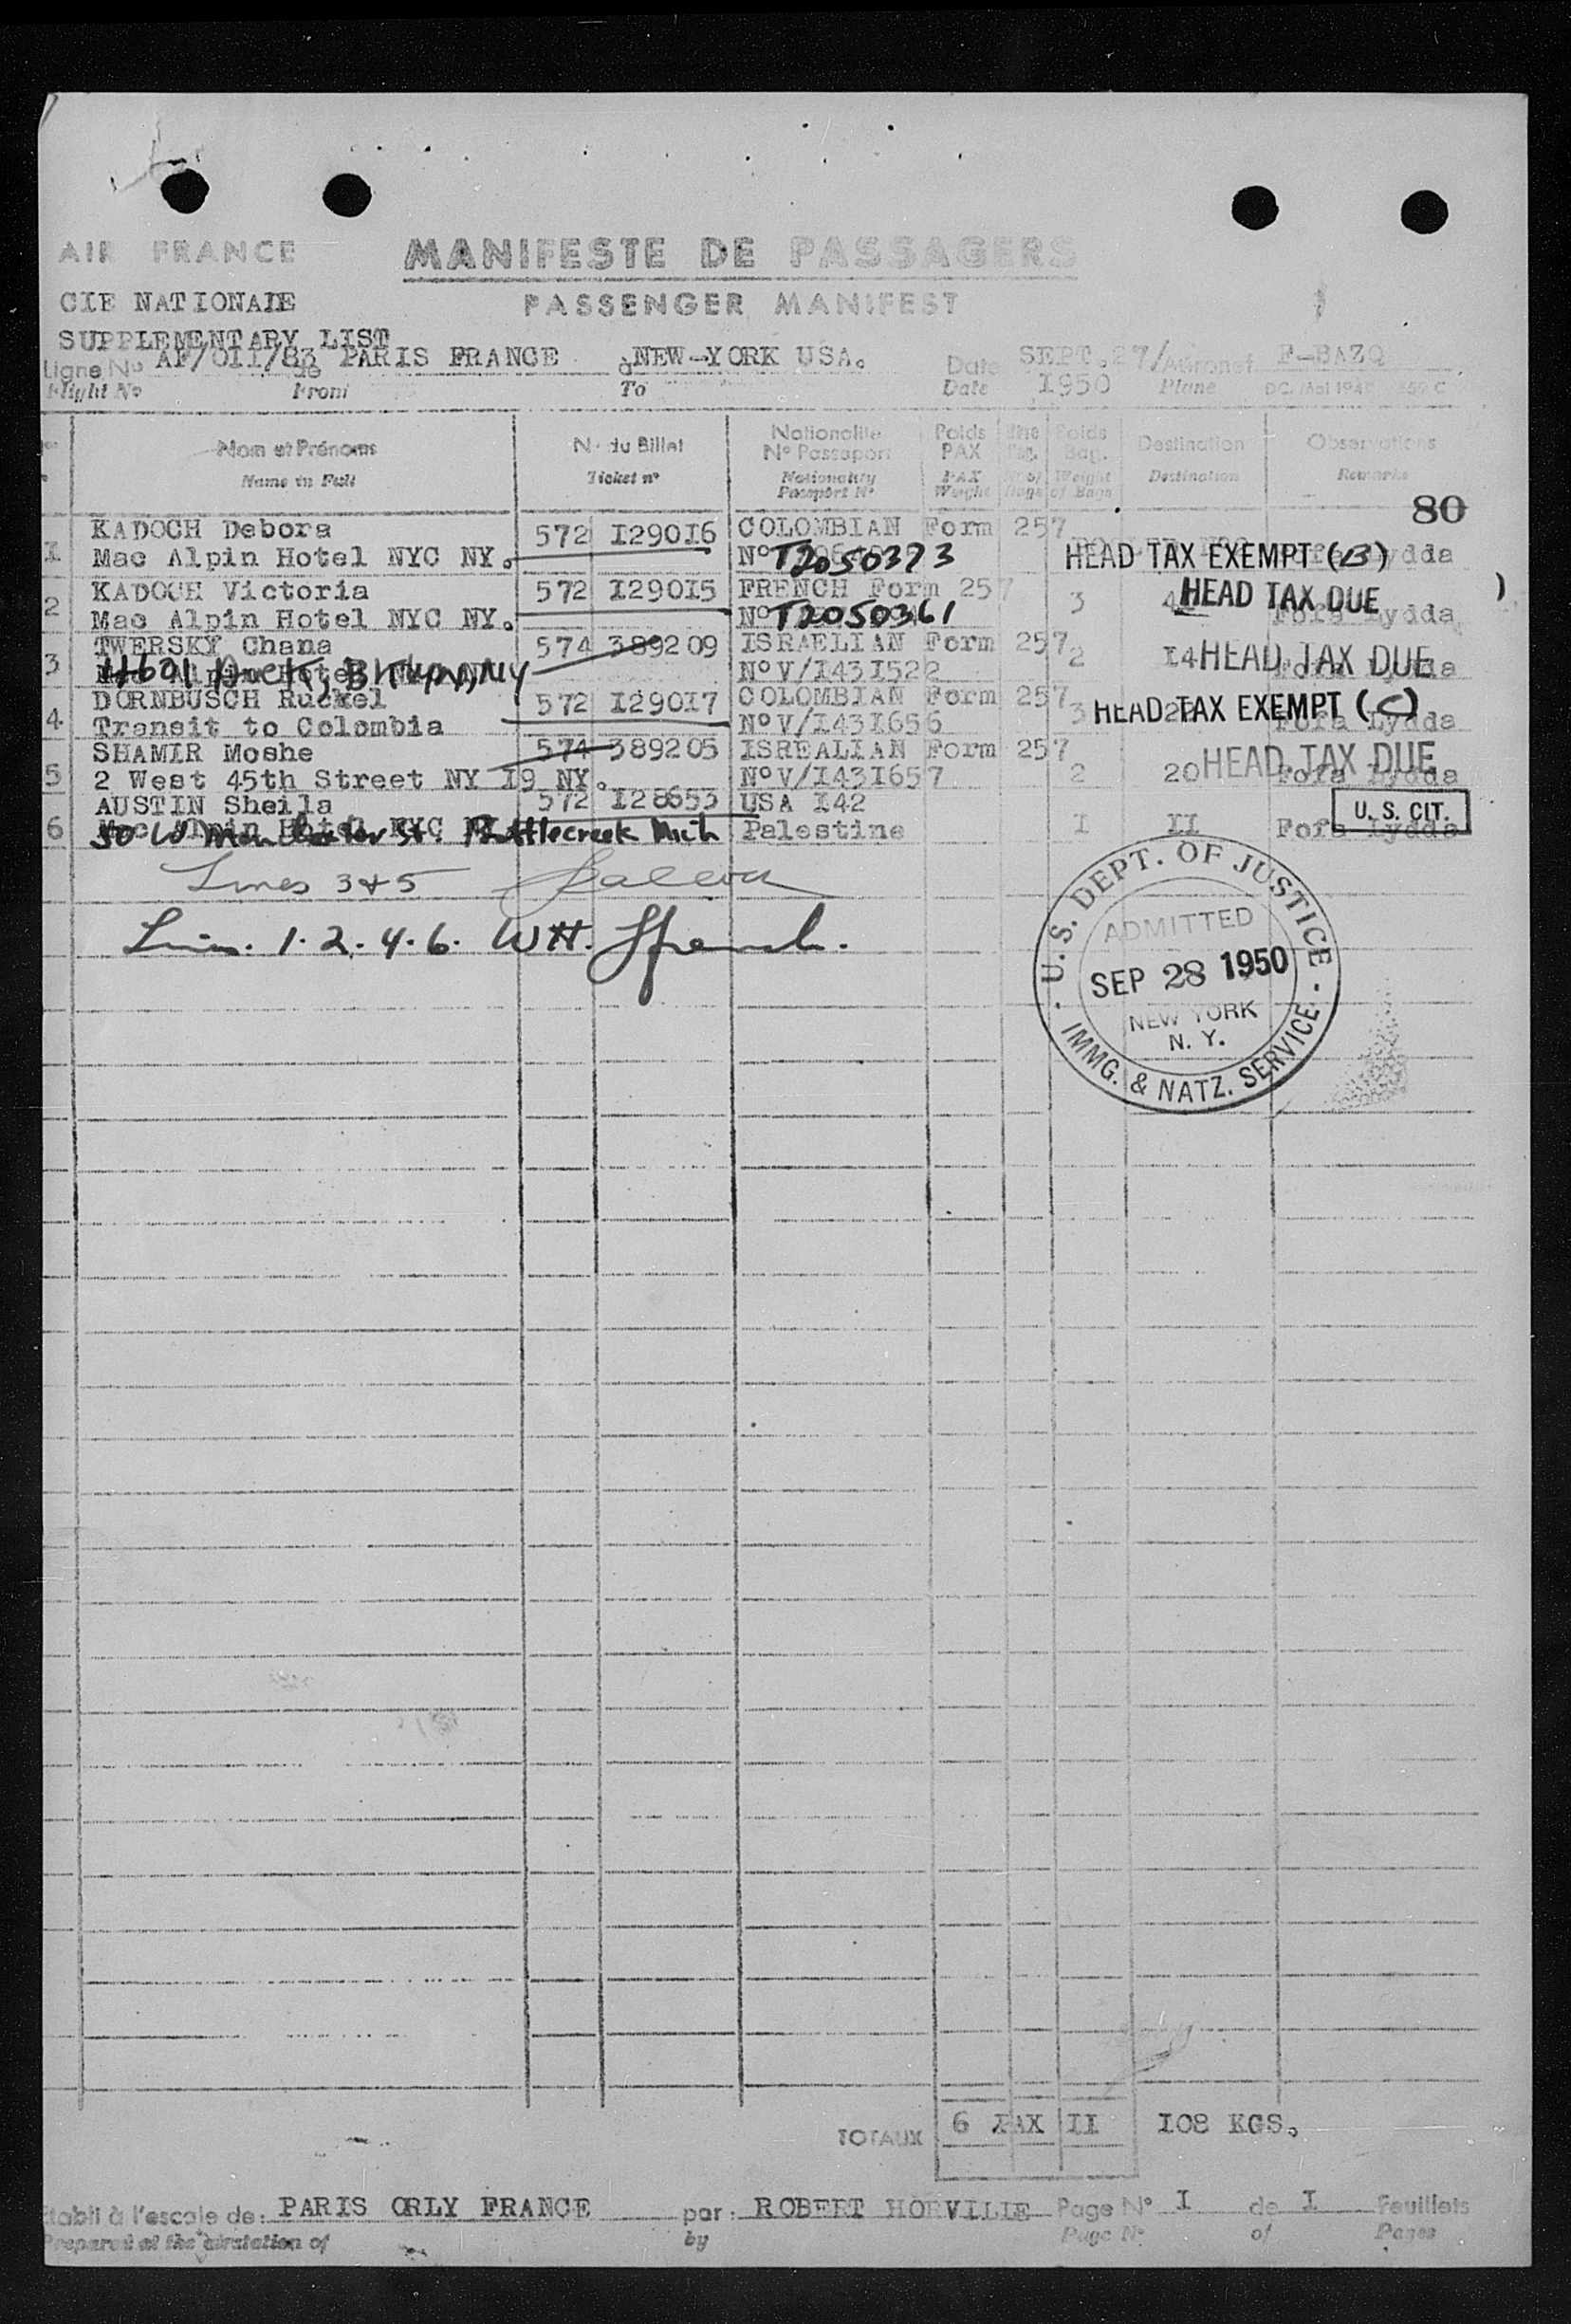 AIR FRANCE
MANIFESTE DE PASSAGERS
CIE NATIONALE
PASSENGER MANIFEST
SUPPLEMENTARY LIST
Ligne No AF/011/83 de PARIS FRANCE à NEW-YORK USA. Date SEPT. 27/ Aéronef F-BAZQ
Flight No From To Date 1950 Plane
Nom et Prénoms
Name in Full
N° du Billet
Ticket n°
Nationalité
N° Passeport
Nationality
Passport N°
Poids
PAX
PAX
Weight
Poids
Bag.
Weight
of Bags
Destination
Destination
Observations
Remarks
80
KADOCH Debora 572 I290I6 COLOMBIAN Form 257
1 Mac Alpin Hotel NYC NY. N° T2050373 HEAD TAX EXEMPT (B) Lydda
KADOCH Victoria 572 I290I5 FRENCH Form 257
2 Mac Alpin Hotel NYC NY. N° T2050361 3 HEAD TAX DUE Fofa Lydda
TWERSKY Chana 574 389209 ISRAELIAN Form 257
3 N° V/I43I522 2 I4 HEAD TAX DUE Fofa Lydda
DORNBUSCH Ruckel 572 I290I7 COLOMBIAN Form 257
4 Transit to Colombia N° V/I43I656 3 HEAD TAX EXEMPT (C) Fofa Lydda
SHAMIR Moshe 574 389205 ISREALIAN Form 257
5 2 West 45th Street NY I9 NY. N° V/I43I657 2 20 HEAD TAX DUE Fofa Lydda
AUSTIN Sheila 572 I28653 USA I42 U. S. CIT.
6 50 W St. Battlecreek Mich Palestine I II Fofa Lydda
Lines 3 & 5
Lines. 1. 2. 4. 6. WH. French.
U. S. DEPT. OF JUSTICE
ADMITTED
SEP 28 1950
NEW YORK
N. Y.
IMMG. & NATZ. SERVICE
TOTAUX 6 PAX II I08 KGS.
Etabli à l'escale de: PARIS ORLY FRANCE par: ROBERT HORVILLE Page N° I de I Feuillets
Prepared at the airstation of by Page N° of Pages